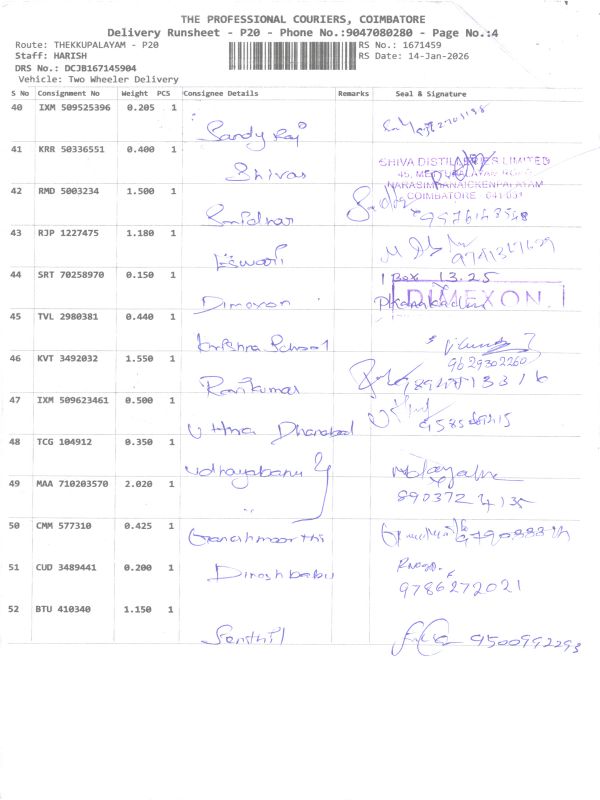 THE PROFESSIONAL COURIERS, COIMBATORE
Delivery Runsheet - P20 - Phone No.:9047080280 - Page No.:4
Route: THEKKUPALAYAM - P20
RS No.: 1671459
Staff: HARISH
RS Date: 14-Jan-2026
DRS No.: DCJB167145904
Vehicle: Two Wheeler Delivery
S No Consignment No Weight PCS Consignee Details Remarks Seal & Signature
40 IXM 509525396 0.205 1
Sandy Raj
41 KRR 50336551 0.400 1
Shivas
SHIVA DISTILLERIES LIMITED
NARASIMHANAICKENPALAYAM
COIMBATORE - 641 031
42 RMD 5003234 1.500 1
43 RJP 1227475 1.180 1
Eswari
44 SRT 70258970 0.150 1
1 Box 13.25
DIMEXON
Dimexon
45 TVL 2980381 0.440 1
Krishna School
46 KVT 3492032 1.550 1
9629302260
Ravikumar
47 IXM 509623461 0.500 1
Uthra Dhanabal
48 TCG 104912 0.350 1
Udhayabanu
49 MAA 710203570 2.020 1
,,
50 CMM 577310 0.425 1
Ganeshmoorthi
51 CUD 3489441 0.200 1
Dineshbabu
9786272021
52 BTU 410340 1.150 1
Senthil
9500992293